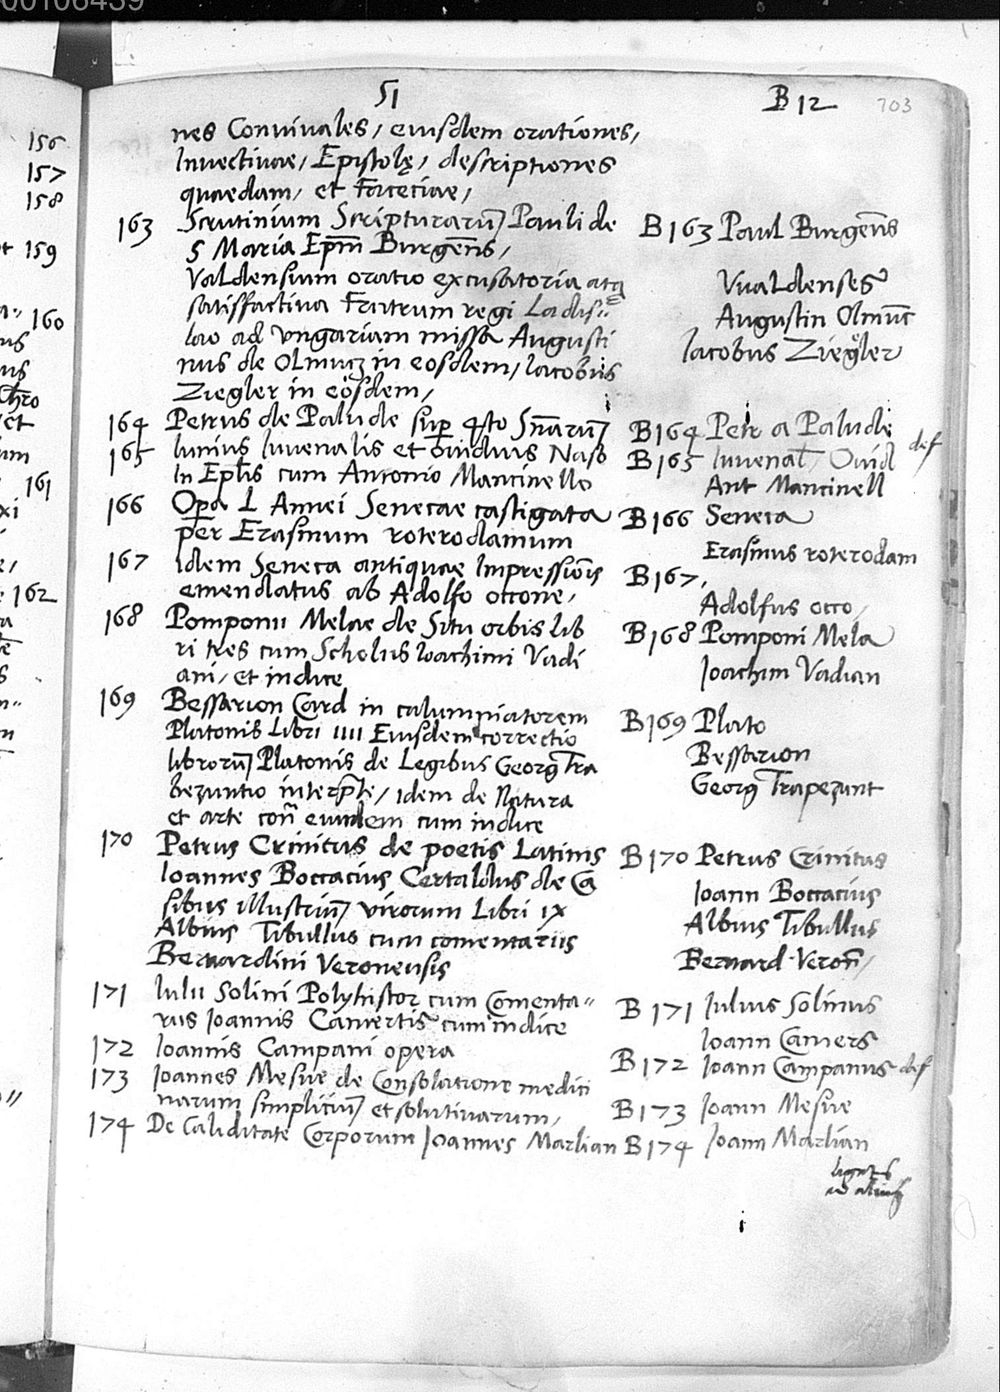 00106439
51 B 12 703
nes Conviuales, eiusdem orationes,
Inuectiuae, Epistolę, descriptiones
quaedam, et Faceciae,
163 Scrutinium Scripturarū Pauli de B163 Paul Burgēns
S Maria Ep̄m Burgēns,
Valdensium oratio excusatoria atq Vualdenses
satisfactiua Fratrum regi Ladis= Augustin Olmuc
lao ad Vngariam missa Augusti
nus de Olmucz in eosdem, Iacobus Iacobus Ziegler
Ziegler in eosdem,
164 Petrus de Palude sup 4to Sn̄arū B164 Petr a Palude
165 Iunius Iuuenalis et Ouidius Naso B165 Iuuenal, Ouid def
In Ep̄lis cum Antonio Mancinello Ant Mancinell
166 Opa L Annei Senecae castigata B166 Seneca
per Erasmum roterodamum Erasmus roterodam
167 Idem Seneca antiquae Impressionis B167,
emendatus ab Adolfo occone, Adolfus occo,
168 Pomponii Melae de Situ orbis Lib B168 Pomponi Mela
ri tres cum Scholiis Ioachimi Vadi Ioachim Vadian
ani, et indice
169 Bessarion Card in calumniatorem B169 Plato
Platonis Libri IIII Eiusdem correctio Bessarion
librorū Platonis de Legibus Georg Tra Georg Trapezunt
bezuntio interp̄te, Idem de Natura
et arte con̄ eundem cum indice
170 Petrus Crinitus de poetis Latinis B170 Petrus Crinitus
Ioannes Boccacius Certaldus de Ca Ioann Boccacius
sibus illustriū virorum Libri IX Albius Tibullus
Albius Tibullus cum comentariis
Bernardini Veronensis Bernard Veron̄,
171 Iulii Solini Polyhistor cum Comenta= B171 Iulius Solinus
riis Ioannis Camertis cum indice Ioann Camers
172 Ioannis Campani opera B172 Ioann Campanus def
173 Ioannes Mesue de Consolatione medici B173 Ioann Mesue
narum simpliciū et solutiuarum,
174 De Caliditate Corporum Ioannes Marlian B174 Ioann Marlian
156
157
158
159
160
161
162